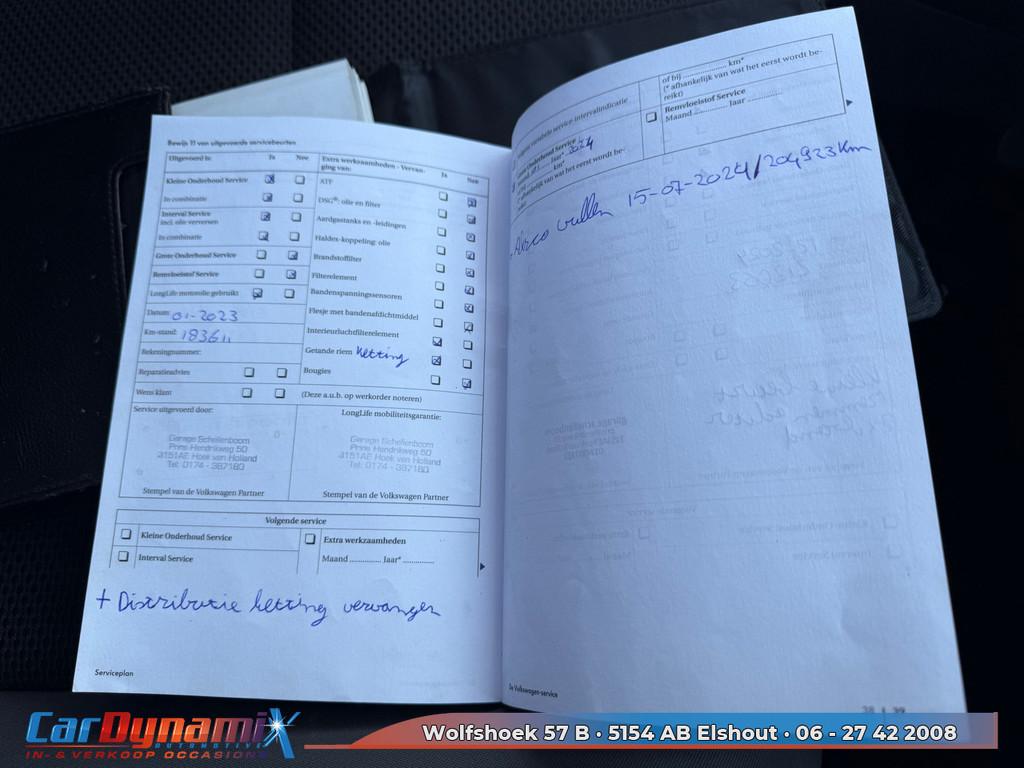 Bewijs 11 van uitgevoerde servicebeurten
Uitgevoerd is: Ja Nee
Kleine Onderhoud Service
In combinatie
Interval Service
incl. olie verversen
In combinatie
Grote Onderhoud Service
Remvloeistof Service
LongLife motorolie gebruikt
Datum: 01-2023
Km-stand: 183611
Rekeningnummer:
Reparatieadvies
Wens klant
Extra werkzaamheden - Vervan-
ging van: Ja Nee
ATF
DSG®: olie en filter
Aardgastanks en -leidingen
Haldex-koppeling: olie
Brandstoffilter
Filterelement
Bandenspanningssensoren
Flesje met bandenafdichtmiddel
Interieurluchtfilterelement
Getande riem ketting
Bougies
(Deze a.u.b. op werkorder noteren)
Service uitgevoerd door:
Garage Schellenboom
Prins Hendrikweg 50
3151AE Hoek van Holland
Tel: 0174 - 387180
Stempel van de Volkswagen Partner
LongLife mobiliteitsgarantie:
Garage Schellenboom
Prins Hendrikweg 50
3151AE Hoek van Holland
Tel: 0174 - 387180
Stempel van de Volkswagen Partner
Volgende service
Kleine Onderhoud Service
Interval Service
Extra werkzaamheden
Maand ............ Jaar* ............
+ Distributie ketting vervangen
Serviceplan
service-intervalindicatie
Onderhoud Service
Jaar* 2024
km*
(* afhankelijk van wat het eerst wordt be-
of bij .................. km*
(* afhankelijk van wat het eerst wordt be-
reikt)
Remvloeistof Service
Maand ............ Jaar ............
Airco vullen 15-07-2024/204923 Km
De Volkswagen-service
CarDynamiX
AUTOMOTIVE
IN- & VERKOOP OCCASIONS
Wolfshoek 57 B • 5154 AB Elshout • 06 - 27 42 2008